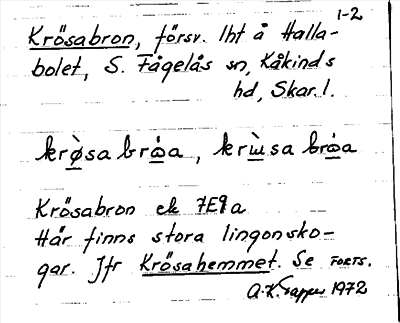 1-2
Krösabron, försv. lht å Halla-
bolet, S. Fågelås sn, Kåkinds
hd, Skar. l.
krø̀sa brω̇a, krɯ̀sa brω̇a
Krösabron ek 7E9a
Här finns stora lingonsko-
gar. Jfr Krösahemmet. Se FORTS.
1972